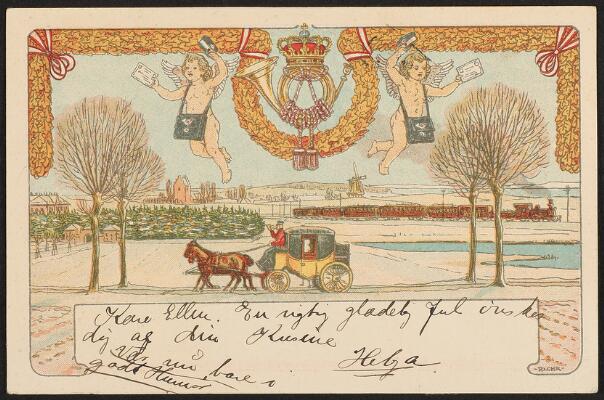 Kære Ellen. En rigtig glædelig Jul ønsker
dig af din Kusine
Helga.
Vær nu bare i
godt Humør
R.CHR.